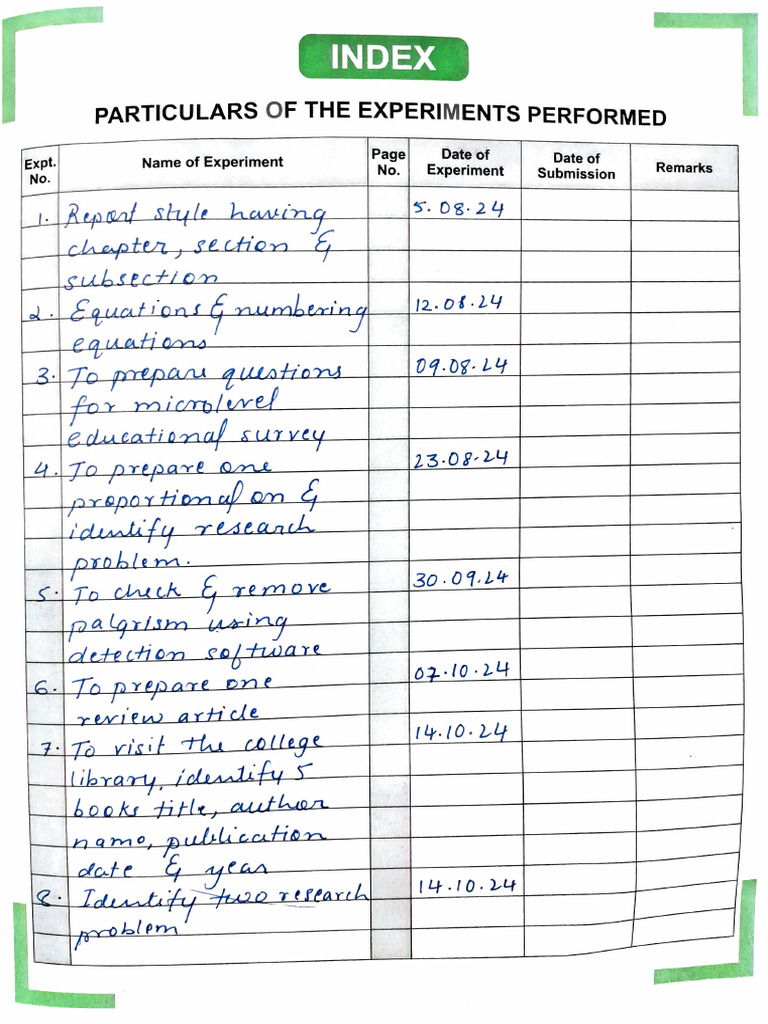 INDEX
PARTICULARS OF THE EXPERIMENTS PERFORMED
Expt. No. Name of Experiment Page No. Date of Experiment Date of Submission Remarks
1. Report style having 5.08.24
chapter, section &
subsection
2. Equations & numbering 12.08.24
equations
3. To prepare questions 09.08.24
for microlevel
educational survey
4. To prepare one 23.08.24
proportional on &
identify research
problem.
5. To check & remove 30.09.24
palgrism using
detection software
6. To prepare one 07.10.24
review article
7. To visit the college 14.10.24
library, identify 5
books title, author
name, publication
date & year
8. Identify two research 14.10.24
problem